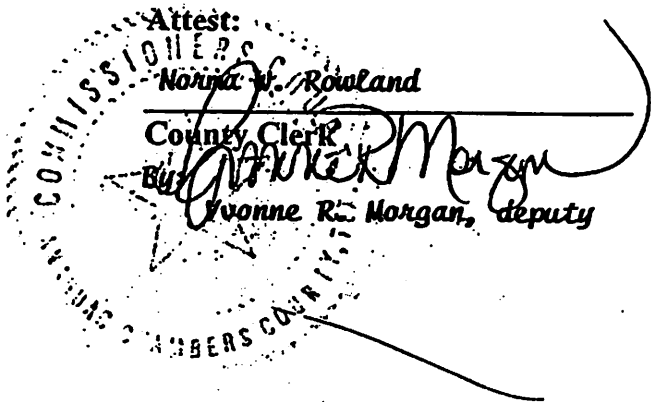 Attest:
Norma W. Rowland
County Clerk
By: Yvonne R. Morgan
Yvonne R. Morgan, deputy
COMMISSIONERS
CHAMBERS COUNTY,